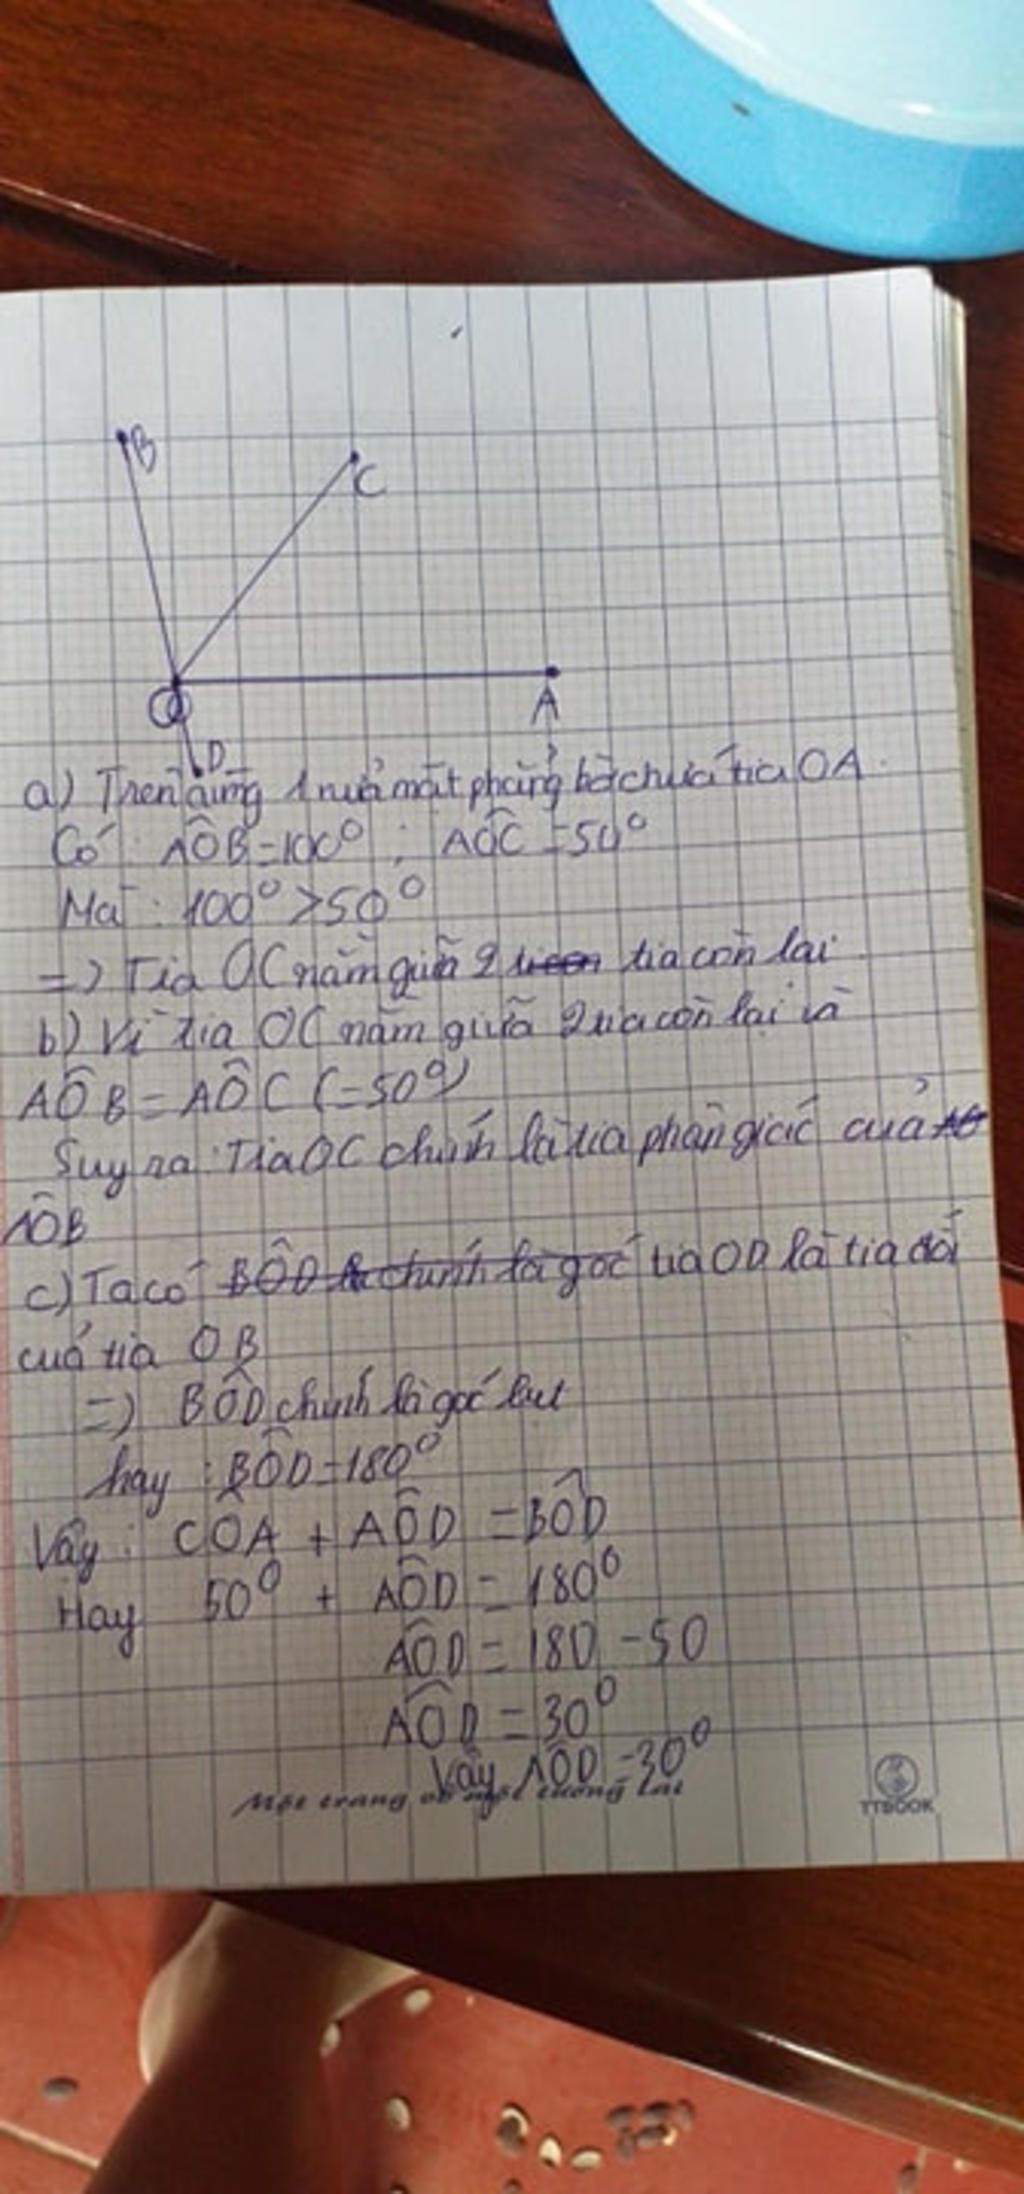 B
C
O
A
D
a) Trên cùng 1 nửa mặt phẳng bờ chứa tia OA.
Có: AÔB = 100° ; AÔC = 50°
Mà : 100° > 50°
=> Tia OC nằm giữa 2 tia còn lại
b) Vì tia OC nằm giữa 2 tia còn lại và
AÔB = AÔC (= 50°)
Suy ra : Tia OC chính là tia phân giác của
AÔB
c) Ta có BÔD chính là góc tia OD là tia đối
cuả tia OB
=) BÔD chính là góc bẹt
hay : BÔD = 180°
Vậy : CÔA + AÔD = BÔD
Hay 50° + AÔD = 180°
AÔD = 180 - 50
AÔD = 30°
Vậy AÔD = 30°
Một trang vở một tương lai
TTBOOK